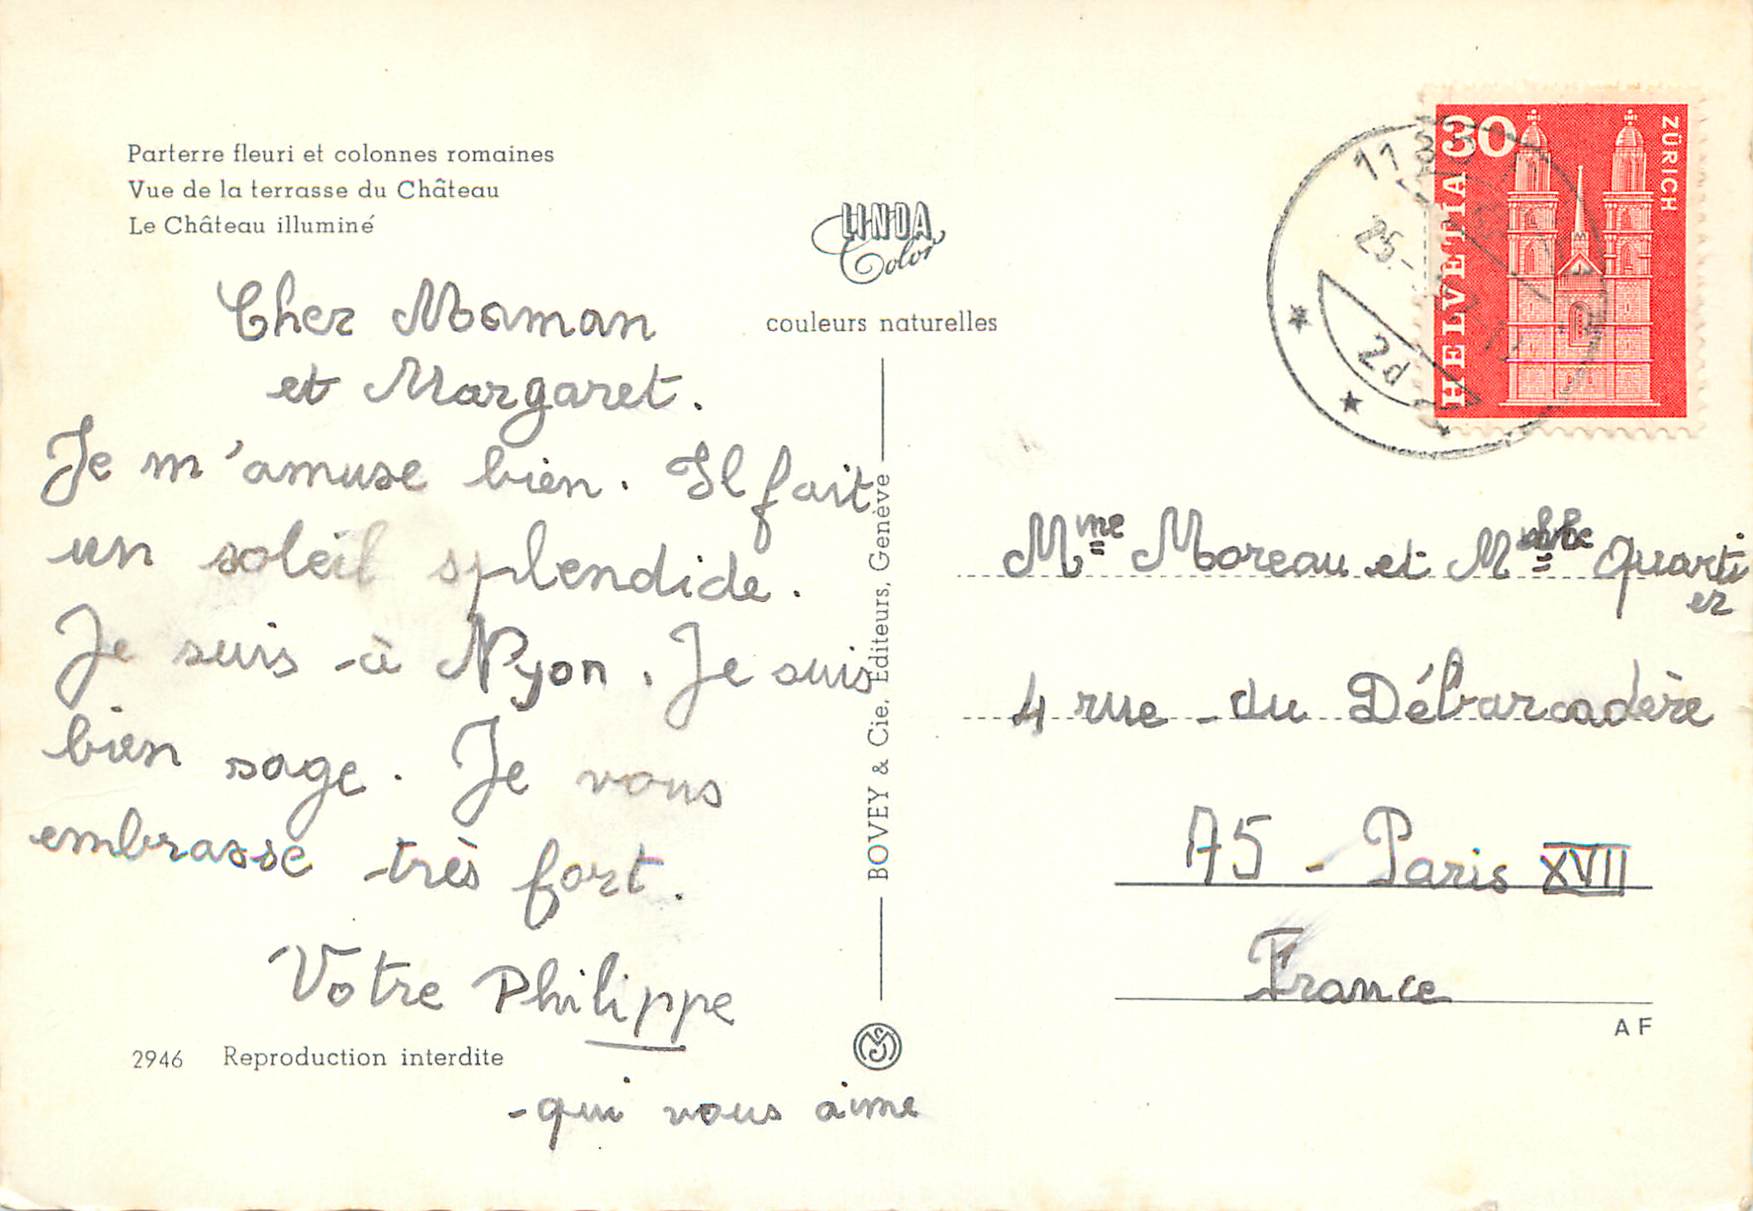 Parterre fleuri et colonnes romaines
Vue de la terrasse du Château
Le Château illuminé
LINDA
Color
couleurs naturelles
Cher Maman
et Margaret.
Je m'amuse bien. Il fait
un soleil splendide.
Je suis à Nyon. Je suis
bien sage. Je vous
embrasse très fort.
Votre Philippe
qui vous aime
2946 Reproduction interdite
BOVEY & Cie, Editeurs, Genève
30
HELVETIA
ZÜRICH
25.
2d
Mme Moreau et Quarti
er
4 rue du Débarcadère
75 - Paris XVII
France
AF